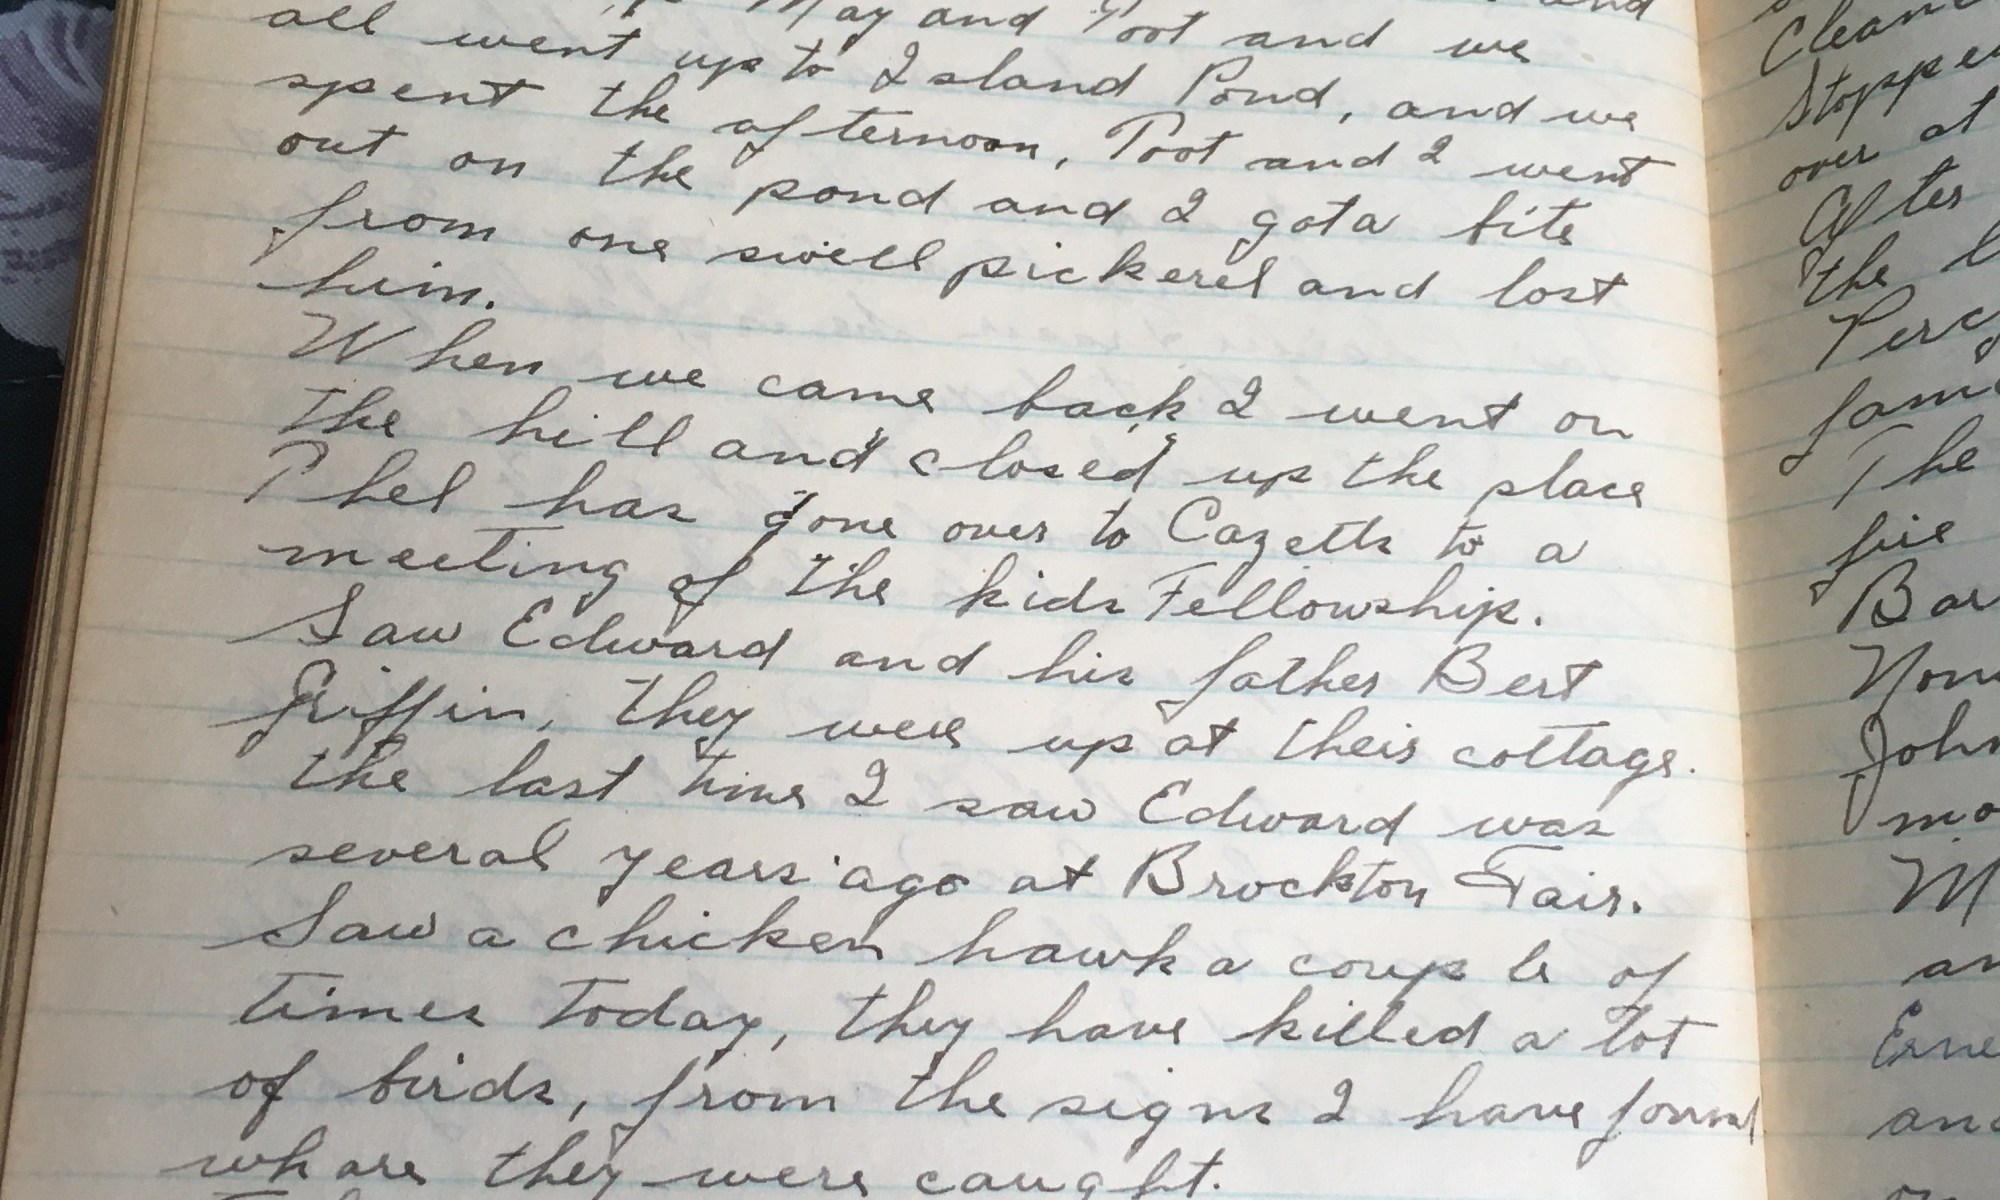 May and Toot and we
all went up to Island Pond, and we
spent the afternoon, Toot and I went
out on the pond and I got a bite
from one swell pickerel and lost
him.
When we came back I went on
the hill and closed up the place
Phel has gone over to Cazetts to a
meeting of the kids Fellowship.
Saw Edward and his father Bert
Griffin, they were up at their cottage.
the last time I saw Edward was
several years ago at Brockton Fair.
Saw a chicken hawk a couple of
times today, they have killed a lot
of birds, from the signs I have found
whare they were caught.
Stopped
over at
After
the
The